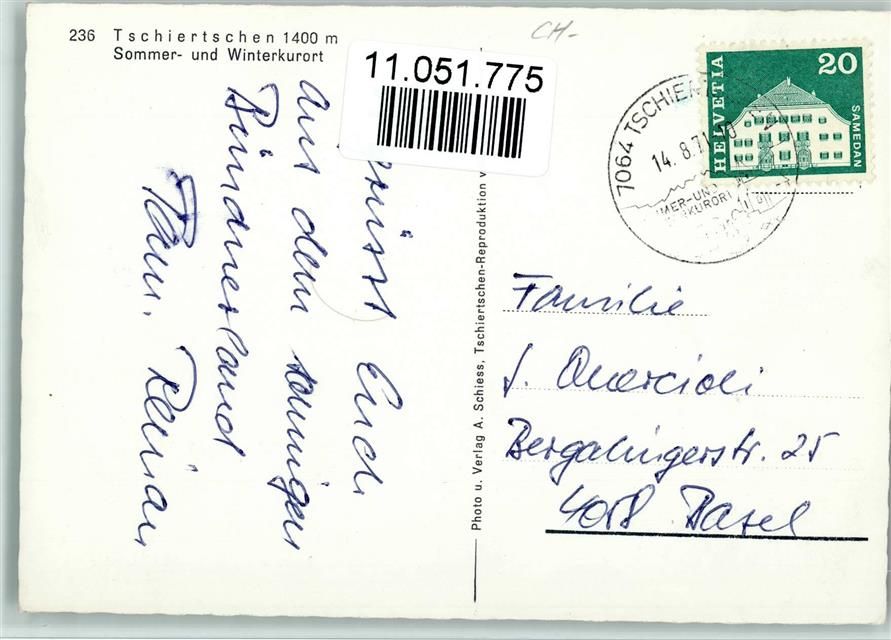 236 Tschiertschen 1400 m
Sommer- und Winterkurort
CH-
11.051.775
HELVETIA
20
SAMEDAN
7064 TSCHIER
14.8.71
MER-UN
KURORT
Grüsst Euch
aus dem sonnigen
Bündnerland
Fam.
Photo u. Verlag A. Schiess, Tschiertschen-Reproduktion v
Familie
J. Quercioli
Bergalingerstr. 25
4058 Basel